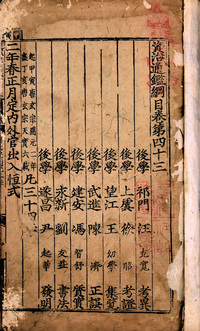 資治通鑑綱目卷第四十三
後學 祁門 汪 克寬 考異
後學 上虞 徐 昭 考證
後學 望江 王 幼學 集覽
後學 武進 陳 濟 正誤
後學 建安 馮 智舒 質實
後學 永新 劉 友益 書法
後學 遂昌 尹 起莘 發明
起甲寅唐玄宗開元二年
盡丁亥唐玄宗天寶六載
凡三十四
二年春正月定內外官出入恒式